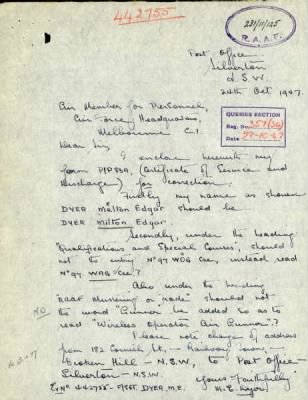 442755
231/11/125
R.A.A.F.
Post Office
Silverton
N.S.W.
24th Oct 1947.
QUERIES SECTION
Reg. No.
Date 27-10-47
Air Member for Personnel,
Air Force Headquarters,
Melbourne C.1.
Dear Sir,
I enclose herewith my
form P/P 88A, (Certificate of Service and
Discharge) for correction.
Firstly my name as shown
DYER Melton Edgar should be
DYER Milton Edgar.
Secondly, under the heading
"Qualifications and Special Courses", should
not the entry Nº97 WOG Cse, instead read
Nº97 WAG Cse?
Also under the heading
"RAAF Mustering or Trade" should not
the word "Gunner" be added so as to
read "Wireless Operator Air Gunner"?
NO
Please note change of address
from 182 Cornish St, - Railway Town,
Broken Hill - N.S.W, to Post Office
Silverton - N.S.W.
Yours faithfully
442755 - F/SGT. DYER. M.E.
M.E. Dyer